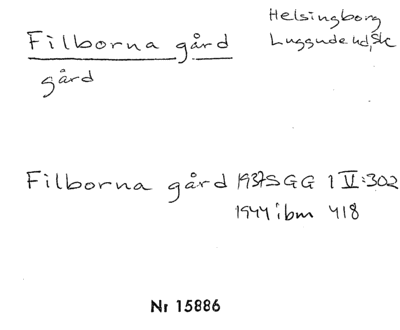 Helsingborg
Luggude hd, Sk
Filborna gård
gård
Filborna gård 1937 SGG 1 V:302
1944 ibm 418
Nr 15886